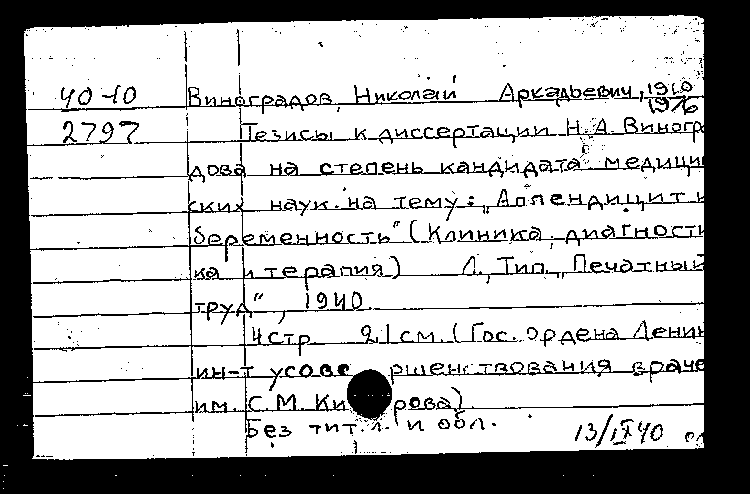 40-10 Виноградов, Николай Аркадьевич, 1910
1976
2797 Тезисы к диссертации Н.А. Виногр
дова на степень кандидата медици
ских наук на тему: „Аппендицит и
беременность" (Клиника, диагности
ка и терапия) Л., Тип. „Печатный
труд", 1940.
4 стр 21 см. (Гос. ордена Ленин
ин-т усовершенствования враче
им. С.М. Кирова)
Без тит.л. и обл.
13/IX 40